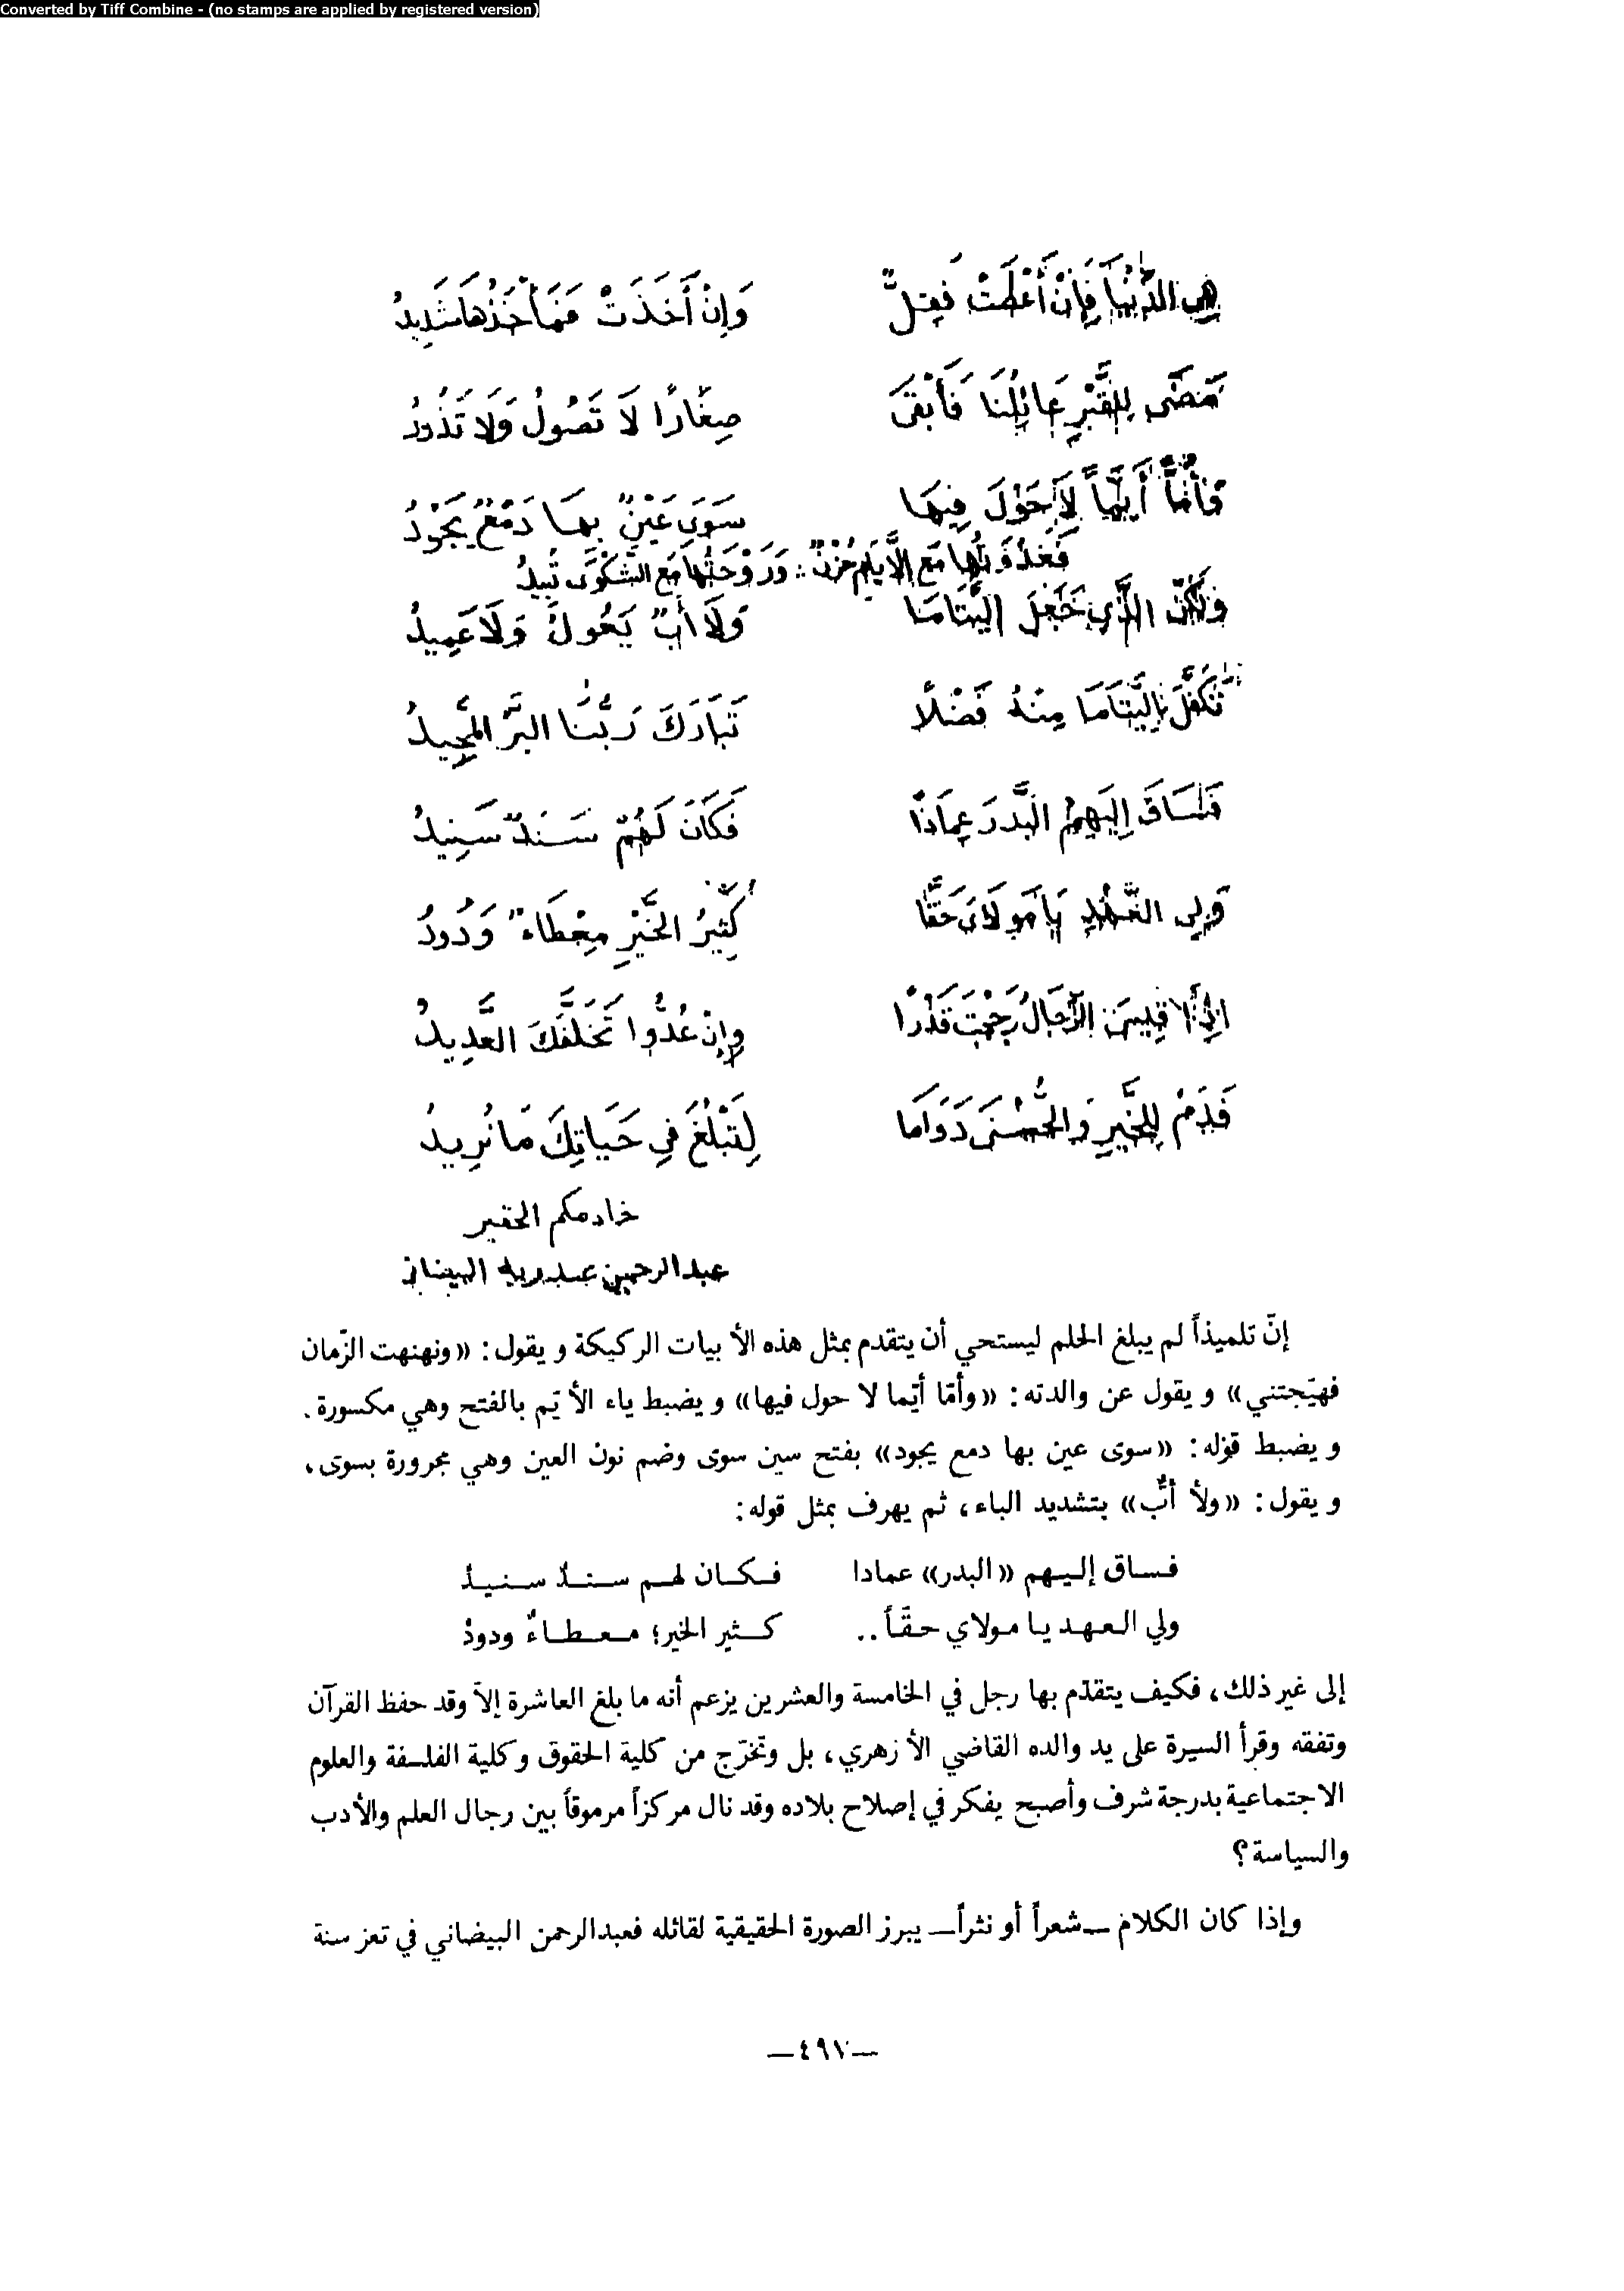 Converted by Tiff Combine - (no stamps are applied by registered version)
هِيَ الدُّنْيَا فَإِنْ أَعْطَتْ فَقِلٌّ وَإِنْ أَخَذَتْ فَمَأْخَذُهَا شَدِيدُ
مَضَى لِلْقَبْرِ عَائِلُنَا فَأَبْقَى صِغَارًا لَا تَصُولُ وَلَا تَذُودُ
وَأُمًّا أَيَّمًا لَا حَوْلَ فِيهَا سَوَى عَيْنٌ بِهَا دَمْعٌ يَجُودُ
فَغُدْوَتُهَا مَعَ الْأَيَّامِ حُزْنٌ ∴ وَرَوْحَتُهَا مَعَ الشَّكْوَى تُبِيدُ
وَلَكِنَّ الَّذِي جَعَلَ الْيَتَامَا وَلَا أَبٌّ يَعُولُ وَلَا عَمِيدُ
تَكَفَّلَ بِالْيَتَامَا مِنْهُ فَضْلًا تَبَارَكَ رَبُّنَا الْبَرُّ الْمَجِيدُ
فَسَاقَ إِلَيْهِمُ الْبَدْرَ عِمَادًا فَكَانَ لَهُمْ سَنَدٌ سَنِيدُ
وَلِي الْعَهْدِ يَا مَوْلَايَ حَقًّا كَثِيرُ الْخَيْرِ مِعْطَاءٌ وَدُودُ
إِذَا قِيسَ الرِّجَالُ رَجَحْتَ قَدْرًا وَإِنْ عُدُّوا تَخَلَّفَكَ الْعَدِيدُ
فَدُمْ لِلْخَيْرِ وَالْحُسْنَى دَوَامًا لِتَبْلُغَ فِي حَيَاتِكَ مَا تُرِيدُ
خادمكم الحقير
عبدالرحمن عبدربه البيضاني
إنّ تلميذاً لم يبلغ الحلم ليستحي أن يتقدم بمثل هذه الأبيات الركيكة ويقول: «ونهنهت الزّمان
فهيّجتني» ويقول عن والدته: «وأمّا أيّما لا حول فيها» ويضبط ياء الأيّم بالفتح وهي مكسورة.
ويضبط قوله: «سوى عين بها دمع يجود» بفتح سين سوى وضم نون العين وهي مجرورة بسوى،
ويقول: «ولا أبٌّ» بتشديد الباء، ثم يهرف بمثل قوله:
فساق إليهم «البدر» عمادا فكان لهم سندٌ سنيدُ
ولي العهد يا مولاي حقّاً.. كثير الخير؛ معطاءٌ ودودُ
إلى غير ذلك، فكيف يتقدّم بها رجل في الخامسة والعشرين يزعم أنه ما بلغ العاشرة إلاّ وقد حفظ القرآن
وتفقه وقرأ السيرة على يد والده القاضي الأزهري، بل وتخرّج من كلية الحقوق وكلية الفلسفة والعلوم
الاجتماعية بدرجة شرف وأصبح يفكر في إصلاح بلاده وقد نال مركزاً مرموقاً بين رجال العلم والأدب
والسياسة؟
وإذا كان الكلام ــ شعراً أو نثراً ــ يبرز الصورة الحقيقية لقائله فعبدالرحمن البيضاني في تعز سنة
—٤٩٧—